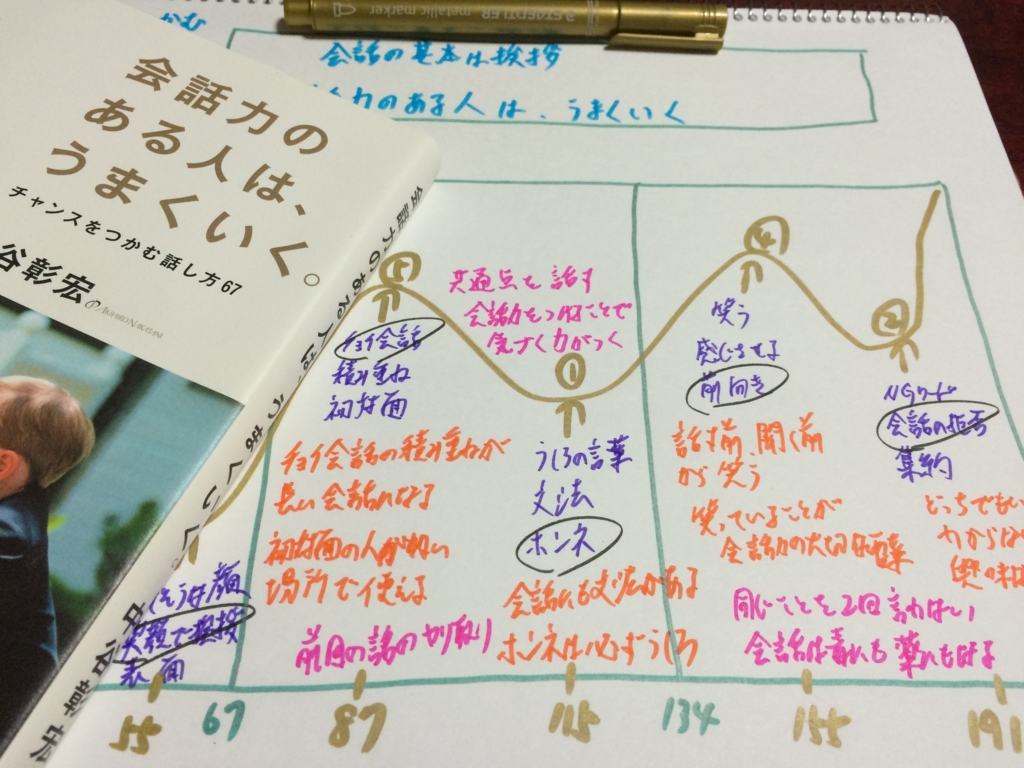 かむ
STAEDTLER metallic marker
会話の基本は挨拶
力のある人は、うまくいく
会話力の
ある人は、
うまくいく。
チャンスをつかむ話し方67
谷彰宏
AKIHIRO NAKATANI
会話力のある人は、うまくいく。
⑤
チョイ会話
積み重ね
初対面
チョイ会話の積み重ねが
長い会話になる
初対面の人がいない
場所で使える
前回の話の切り取り
共通点を話す
会話力をつけることで
気づく力がつく
①
うしろの言葉
文法
ホンネ
会話にも文法がある
ホンネは必ずうしろ
④
笑う
感じさせる
前向き
話す前、聞く前
が笑う
笑っていることが
会話力の大切な要素
同じことを2回言わない
会話は毒にも薬にもなる
②
NGワード
会話の拒否
集約
どっちでもい
わからな
そうな顔
笑顔で挨拶
表面
55
67
87
115
134
155
191